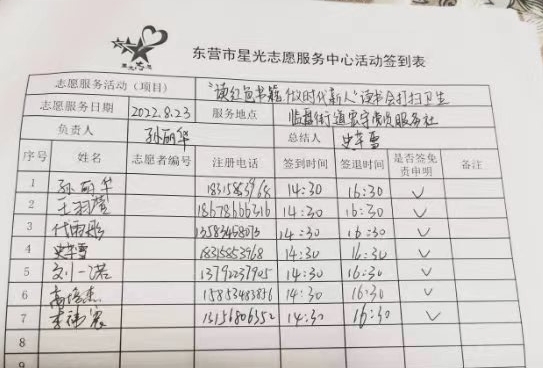 东营市星光志愿服务中心活动签到表
志愿服务活动（项目） "读红色书籍 做时代新人"读书会打扫卫生
志愿服务日期 2022.8.23 服务地点 临盘街道宏宇党员服务社
负责人 孙丽华 总结人 史苹雪
序号 姓名 志愿者编号 注册电话 签到时间 签退时间 是否签免责申明 备注
1 孙丽华 14:30 16:30 ✓
2 王羽萱 18678666316 14:30 16:30 ✓
3 代雨彤 13583468073 14:30 16:30 ✓
4 史苹雪 18315853968 14:30 16:30 ✓
5 刘一诺 13790237905 14:30 16:30 ✓
6 15853483856 14:30 16:30 ✓
7 13156806352 14:30 16:30 ✓
8
9